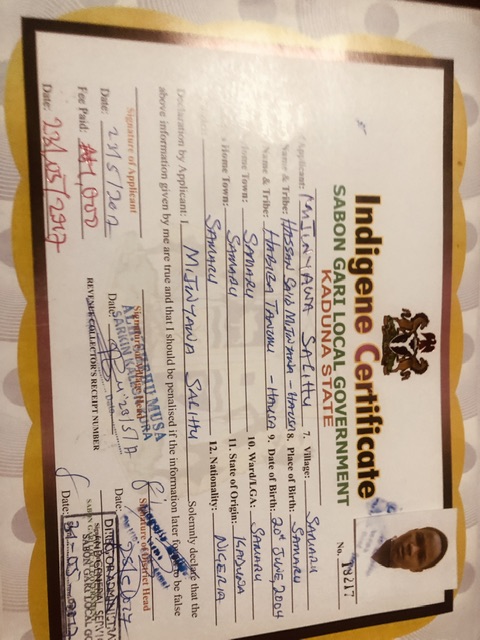 Indigene Certificate
SABON GARI LOCAL GOVERNMENT
KADUNA STATE
No. 19217
Applicant: MIJINYAWA SALIHU 7. Village: SAMARU
Name & Tribe: HASSAN SAID MIJINYAWA - HAUSA 8. Place of Birth: SAMARU
Name & Tribe: HABIBA TANKO - HAUSA 9. Date of Birth: 20th JUNE, 2004
Home Town: SAMARU 10. Ward/LGA: SAMARU
Home Town: SAMARU 11. State of Origin: KADUNA
SAMARU 12. Nationality: NIGERIA
Declaration by Applicant: I, MIJINYAWA SALIHU Solemnly declare that the
above information given by me are true and that I should be penalised if the information later found to be false
Signature of Applicant
Signature of District Head
Date: 22/5/2017
Date: 23/5/17
Date:
Fee Paid: ₦1,000
REVENUE COLLECTOR'S RECEIPT NUMBER
Date: 22/05/2017
Date: